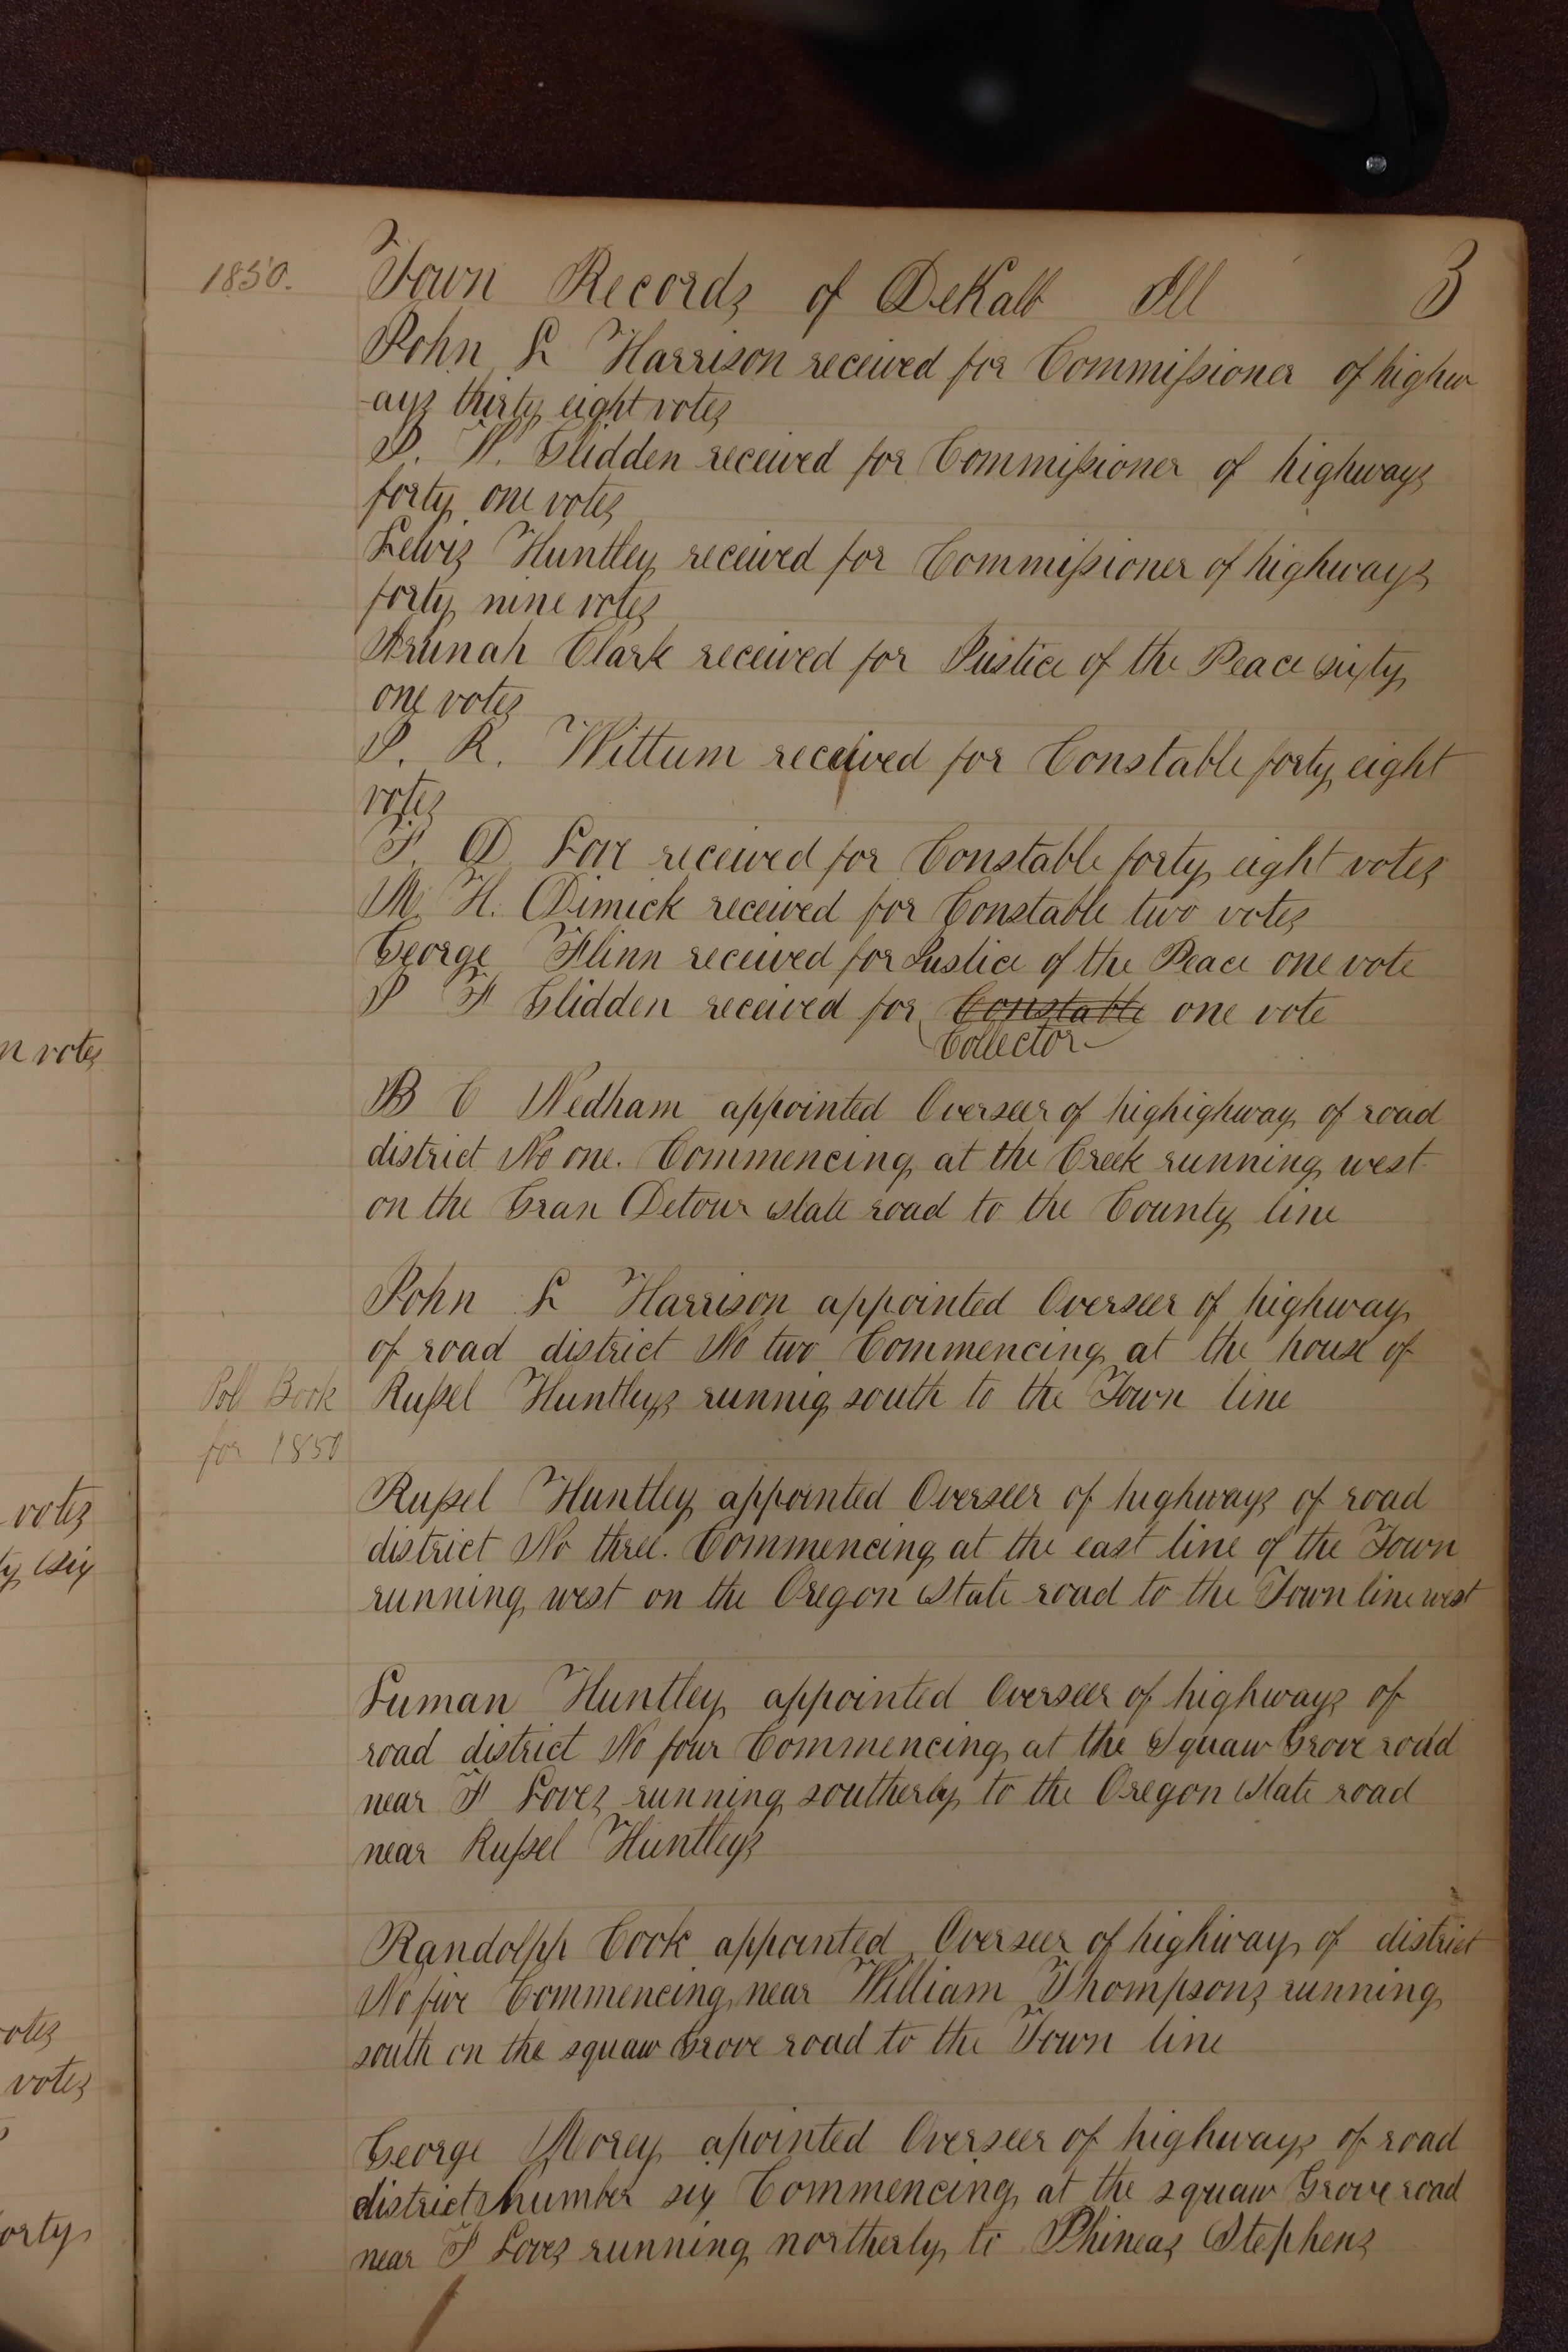 1850.
Town Records of DeKalb Ill 3
John L Harrison received for Commissioner of highw
-ays thirty eight votes
J. W. Glidden received for Commissioner of highways
forty one votes
Lewis Huntley received for Commissioner of highways
forty nine votes
Arunah Clark received for Justice of the Peace sixty
one votes
J. R. Wittum received for Constable forty eight
votes
F. D. Love received for Constable forty eight votes
M. H. Dimick received for Constable two votes
George Flinn received for Justice of the Peace one vote
J F Glidden received for Constable one vote
Collector
B C Nedham appointed Overseer of highighway of road
district No one. Commencing at the Creek running west
on the Gran Detour state road to the County line
John L Harrison appointed Overseer of highway
of road district No two Commencing at the house of
Poll Book
Russel Huntleys runnig south to the Town line
for 1850
Russel Huntley appointed Overseer of highways of road
district No three. Commencing at the east line of the Town
running west on the Oregon State road to the Town line west
Luman Huntley appointed Overseer of highways of
road district No four Commencing at the Squaw Grove road
near F Loves running southerly to the Oregon State road
near Russel Huntleys
Randolph Cook appointed Overseer of highway of district
No five Commencing near William Thompsons running
south on the squaw Grove road to the Town line
George Morey apointed Overseer of highways of road
district number six Commencing at the squaw Grove road
near F Loves running northerly to Phineas Stephens
n votes
votes
ty six
votes
votes
orty